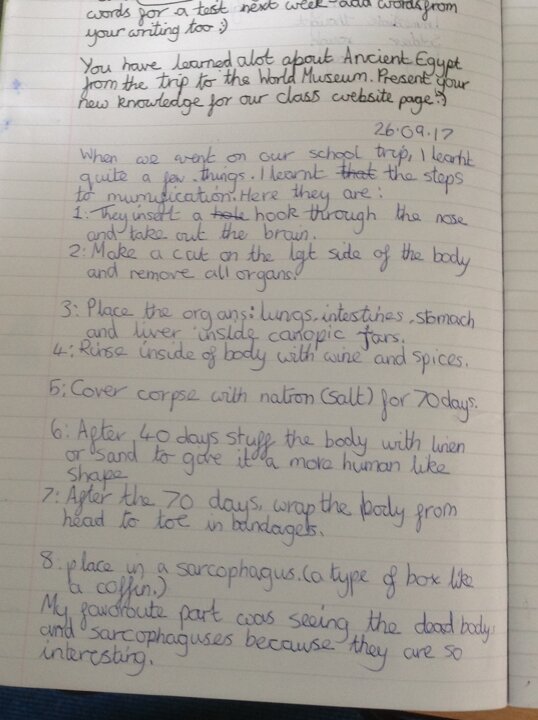 words for a test next week - add words from
your writing too :)
You have learned alot about Ancient Egypt
from the trip to the World Museum. Present your
new knowledge for our class website page :)
26.09.17
When we went on our school trip, I learnt
quite a few things. I learnt that the steps
to mumufication. Here they are:
1: They insert a hole hook through the nose
and take out the brain.
2: Make a cut on the left side of the body
and remove all organs.
3: Place the organs: lungs, intestines, stomach
and liver inside canopic jars.
4: Rinse inside of body with wine and spices.
5: Cover corpse with natron (salt) for 70 days.
6: After 40 days stuff the body with linen
or sand to give it a more human like
shape
7: After the 70 days, wrap the body from
head to toe in bandagets.
8: place in a sarcophagus. (a type of box like
a coffin.)
My favoroute part was seeing the dead body
and sarcophaguses because they are so
interesting.